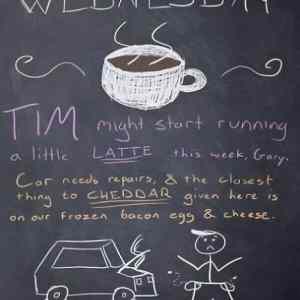 WEDNESDAY
TIM might start running
a little LATTE this week, Gary.
Car needs repairs, & the closest
thing to CHEDDAR given here is
on our frozen bacon egg & cheese.